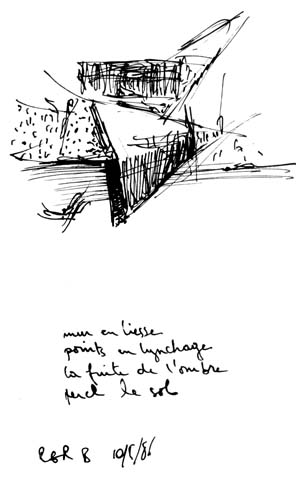 mur en liesse
points en lynchage
la fuite de l'ombre
perd le sol
B 10/5/86